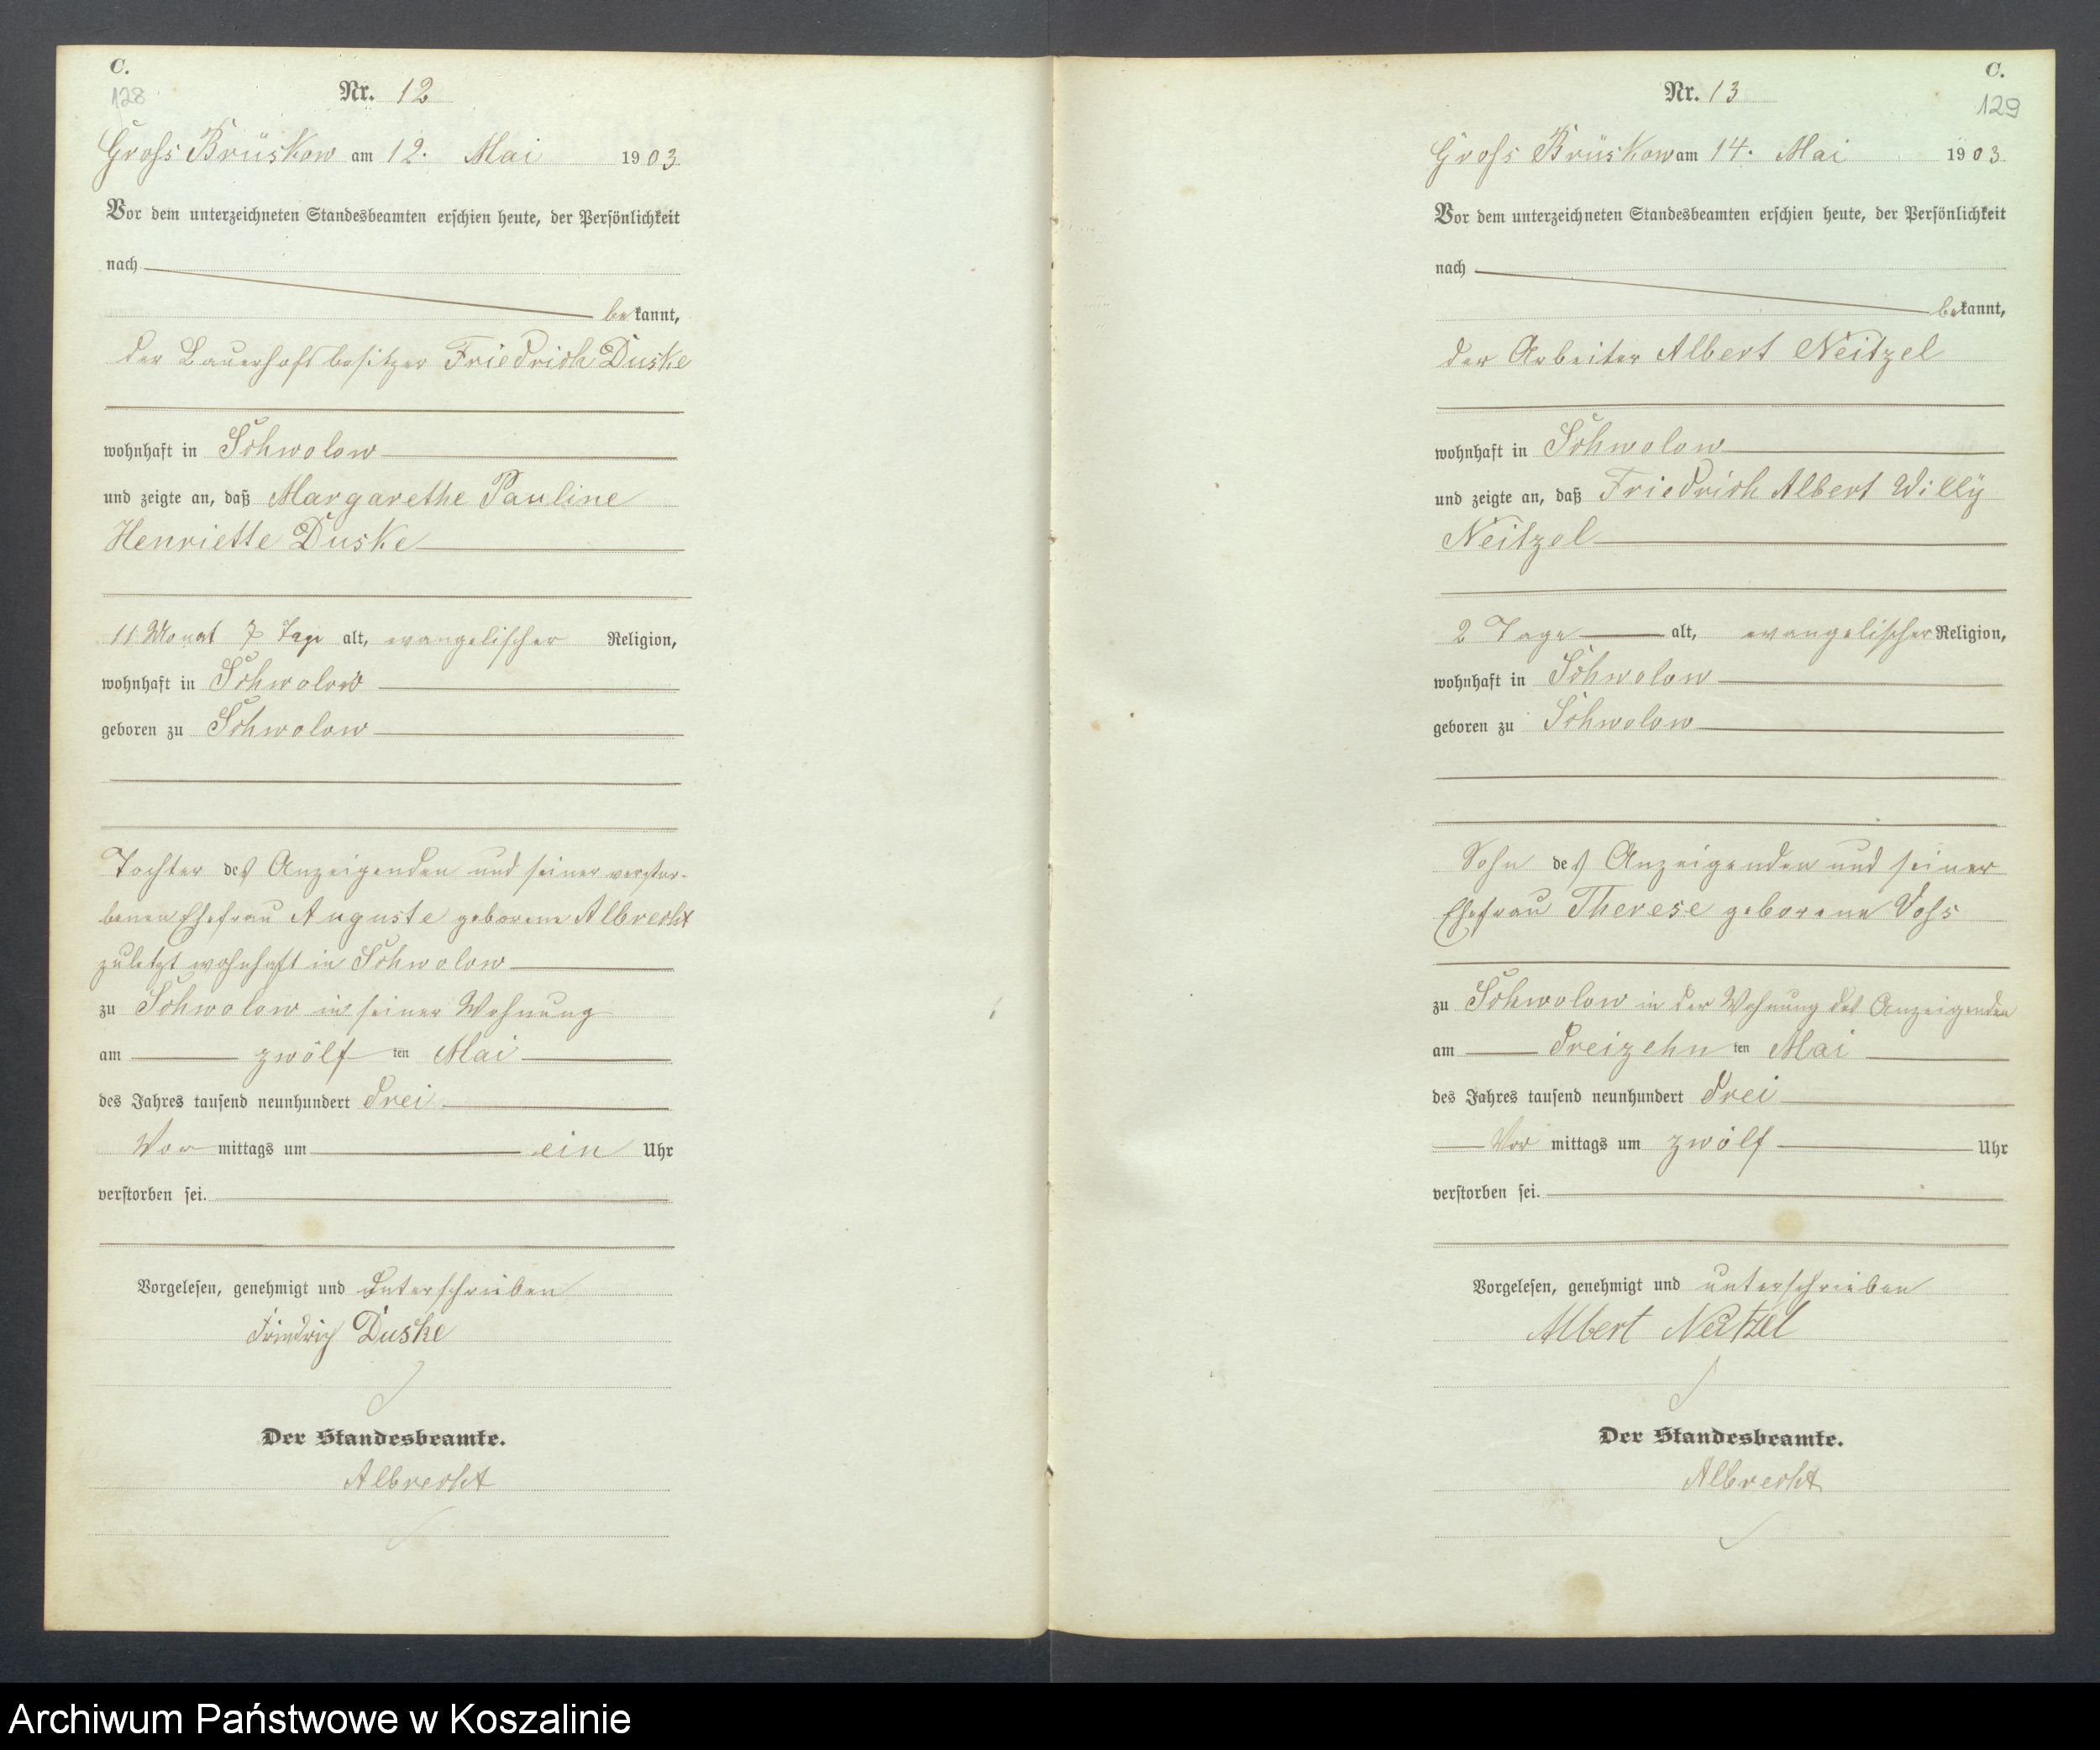 C.
128
Nr. 12
Gross Brüskow am 12. Mai 1903.
Vor dem unterzeichneten Standesbeamten erschien heute, der Persönlichkeit
nach
bekannt,
der Bauerhofsbesitzer Friedrich Duske
wohnhaft in Schwolow
und zeigte an, daß Margarethe Pauline
Henriette Duske
11 Monat 7 Tage alt, evangelischer Religion,
wohnhaft in Schwolow
geboren zu Schwolow
Tochter des Anzeigenden und seiner verstor-
benen Ehefrau Auguste geborene Albrecht
zuletzt wohnhaft in Schwolow
zu Schwolow in seiner Wohnung
am zwölf ten Mai
des Jahres tausend neunhundert drei
Vor mittags um ein Uhr
verstorben sei.
Vorgelesen, genehmigt und unterschrieben
Friedrich Duske
Der Standesbeamte.
Albrecht
C.
129
Nr. 13
Gross Brüskow am 14. Mai 1903.
Vor dem unterzeichneten Standesbeamten erschien heute, der Persönlichkeit
nach
bekannt,
der Arbeiter Albert Neitzel
wohnhaft in Schwolow
und zeigte an, daß Friedrich Albert Willÿ
Neitzel
2 Tage alt, evangelischer Religion,
wohnhaft in Schwolow
geboren zu Schwolow
Sohn des Anzeigenden und seiner
Ehefrau Therese geborene Voss
zu Schwolow in der Wohnung des Anzeigenden
am dreizehn ten Mai
des Jahres tausend neunhundert drei
Vor mittags um zwölf Uhr
verstorben sei.
Vorgelesen, genehmigt und unterschrieben
Albert Neitzel
Der Standesbeamte.
Albrecht
Archiwum Państwowe w Koszalinie